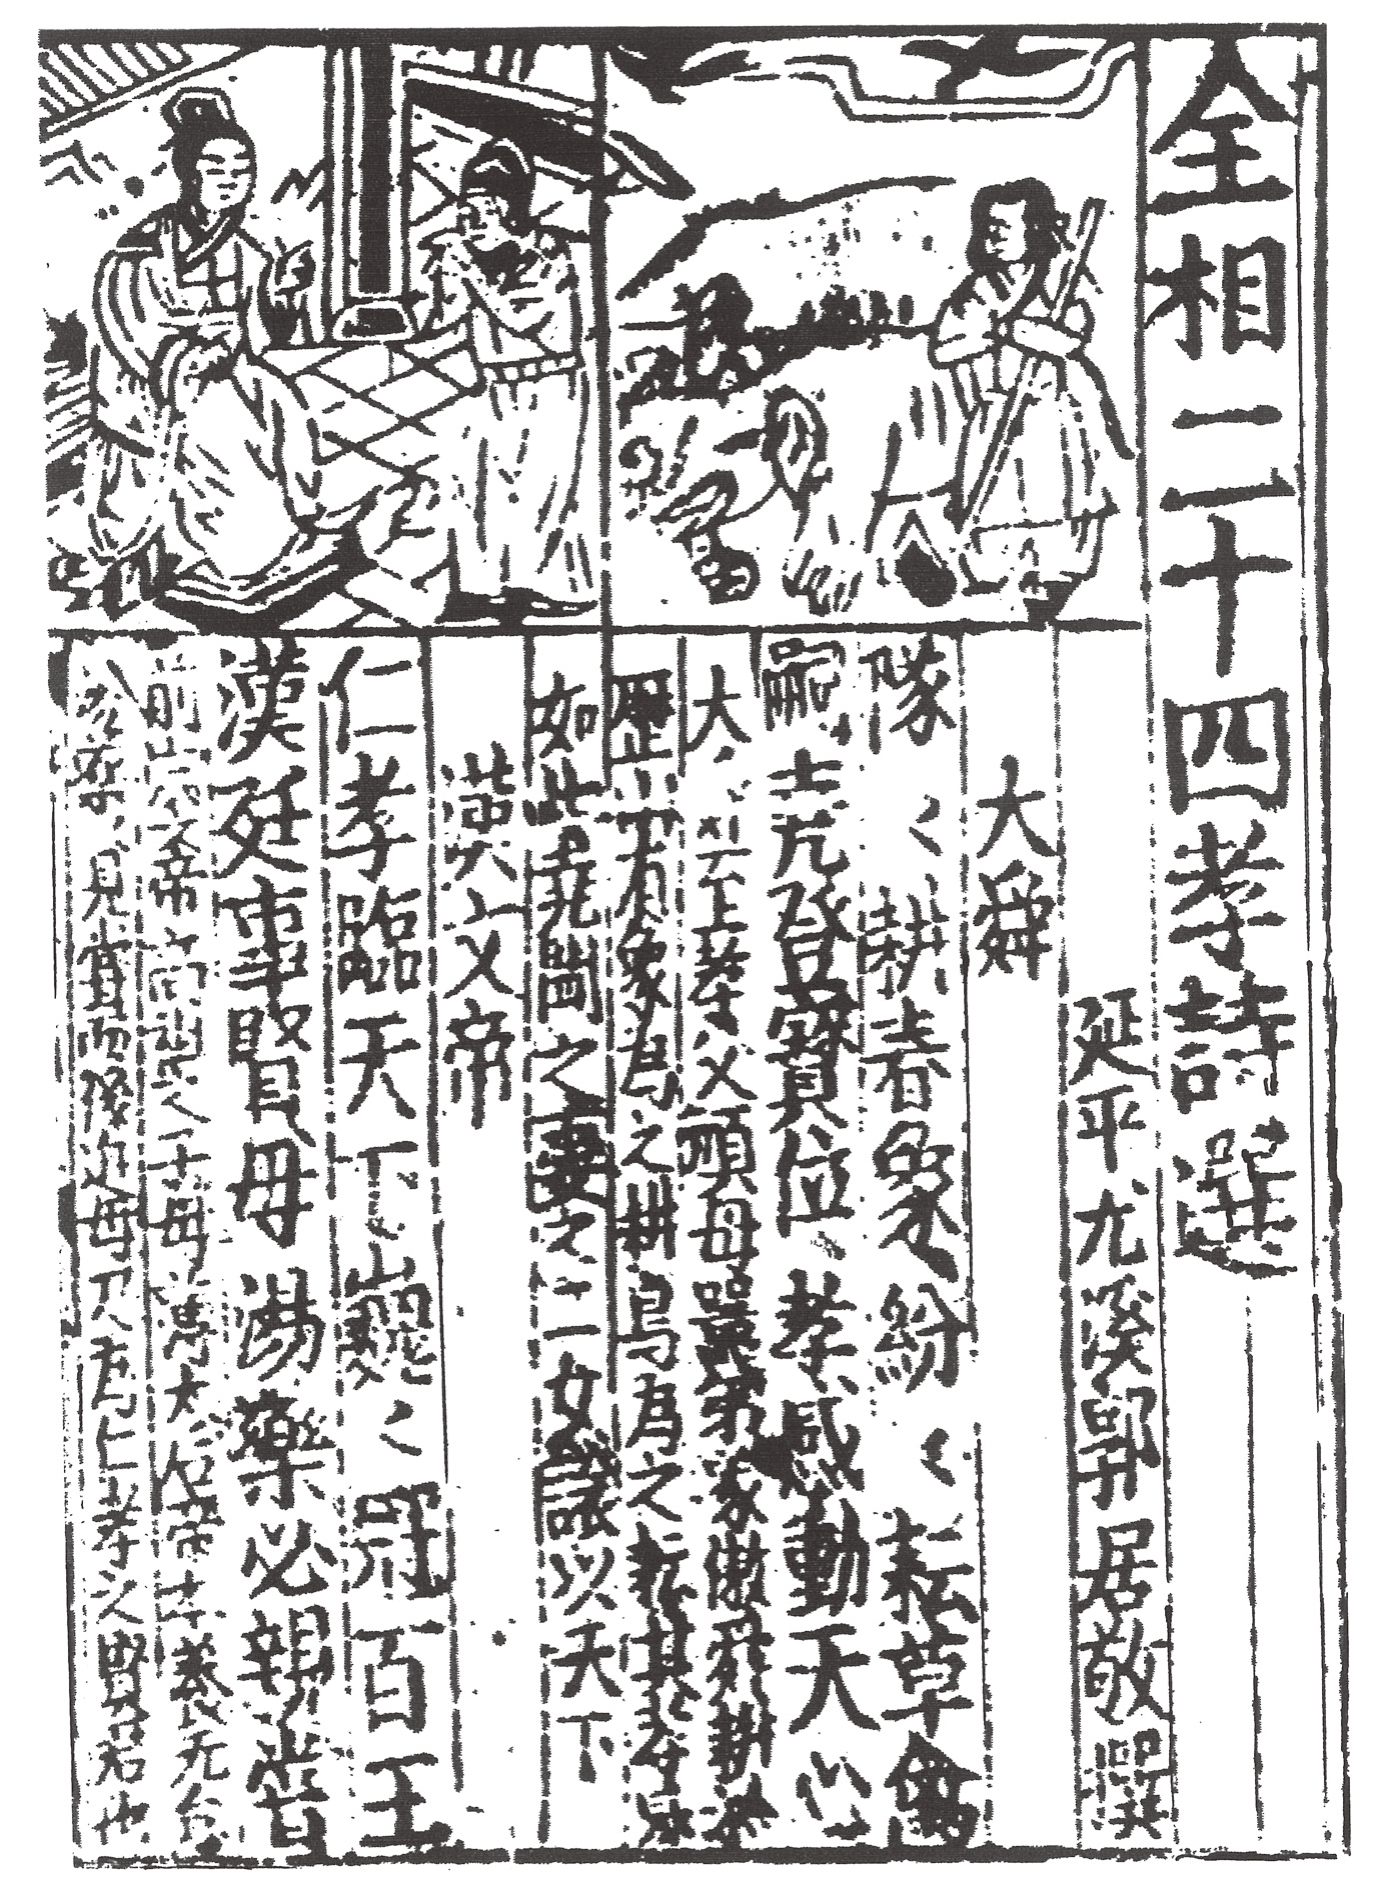 全相二十四孝詩選
延平尤溪郭居敬撰
大舜
隊く耕春象紛く耘草禽
嗣尭登寳位孝感動天心
大至孝父頑母嚚弟象傲舜耕
歷山有象爲之耕鳥爲之耘其孝感
如此堯聞之妻之二女讓以天下
漢文帝
仁孝臨天下巍く冠百王
漢廷事賢母湯藥必親嘗
前漢文帝高祖之子母薄太后帝奉養无怠
母可爲仁孝之賢君也